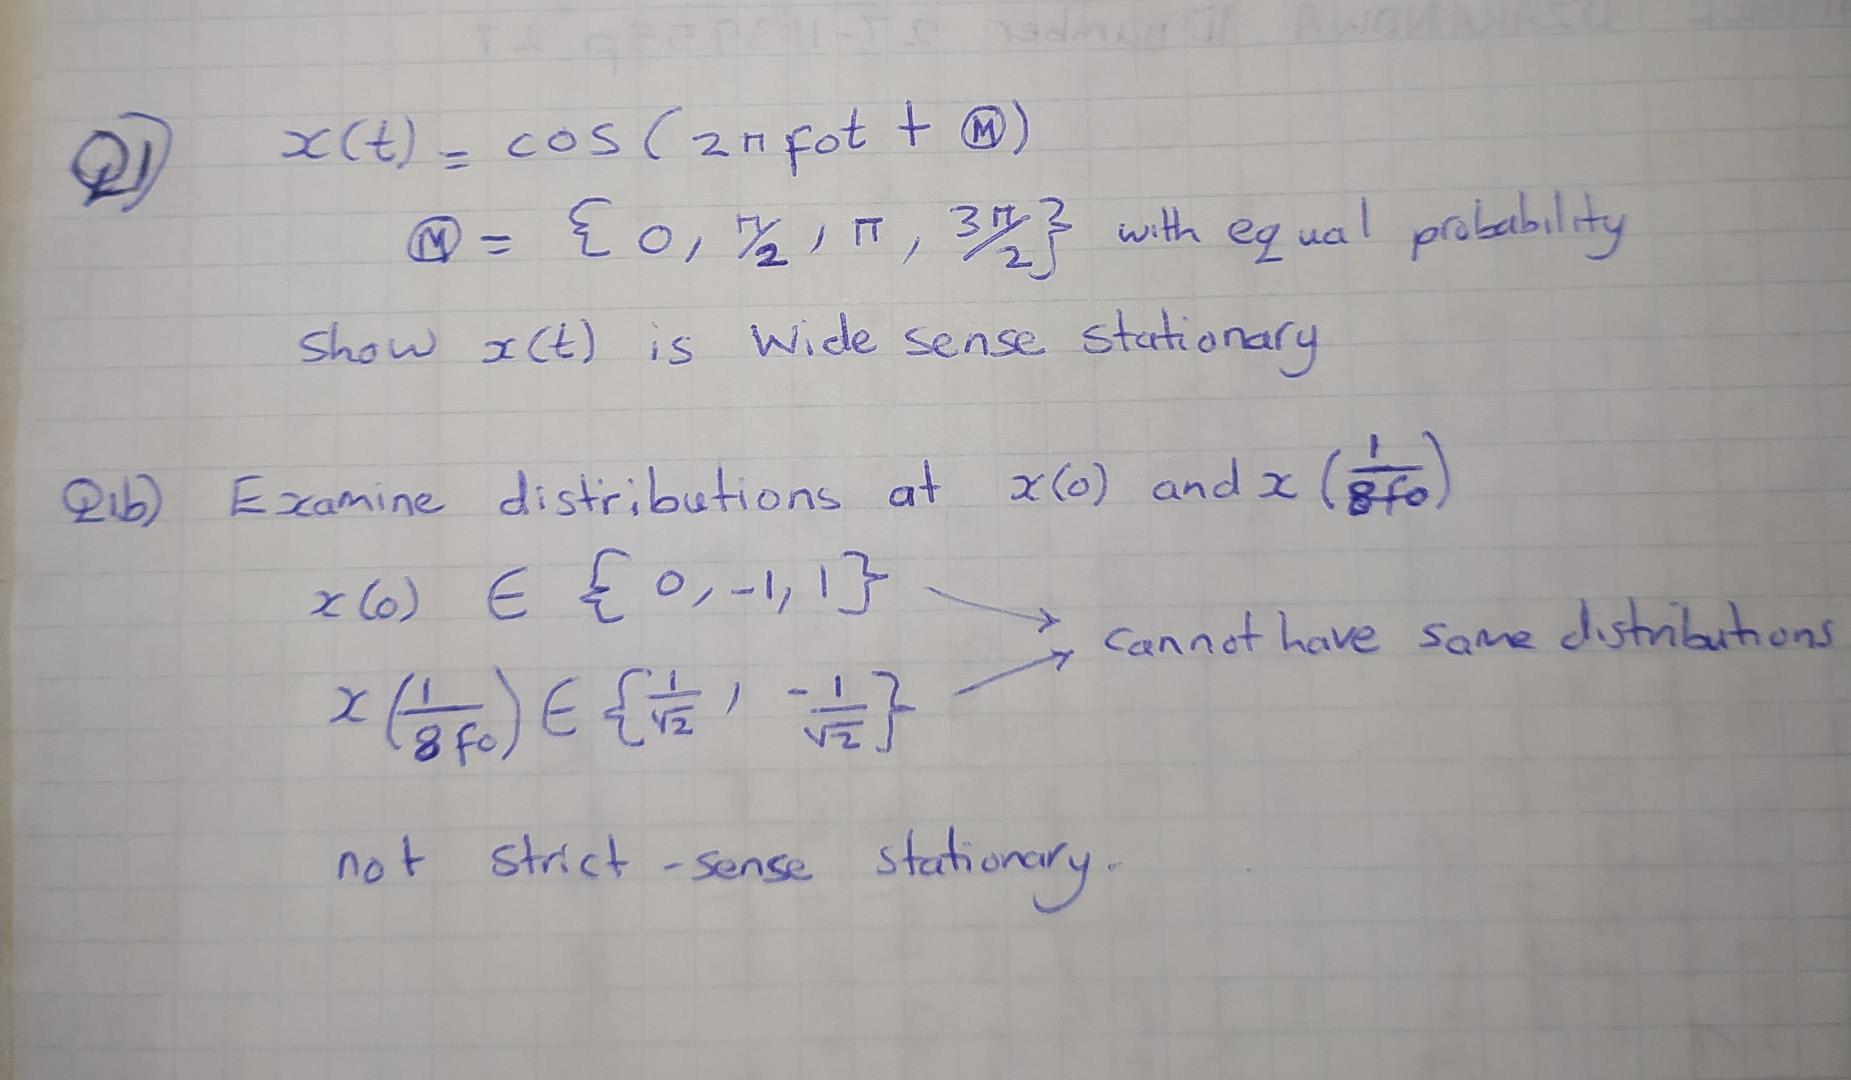 Q1) x(t) = cos(2πfot + Ⓜ)
Ⓜ = {0, π/2, π, 3π/2} with equal probability
show x(t) is wide sense stationary
Q1b) Examine distributions at x(0) and x(1/8fo)
x(0) ∈ {0, -1, 1}
cannot have same distributions
x(1/8fo) ∈ {1/√2, -1/√2}
not strict-sense stationary.